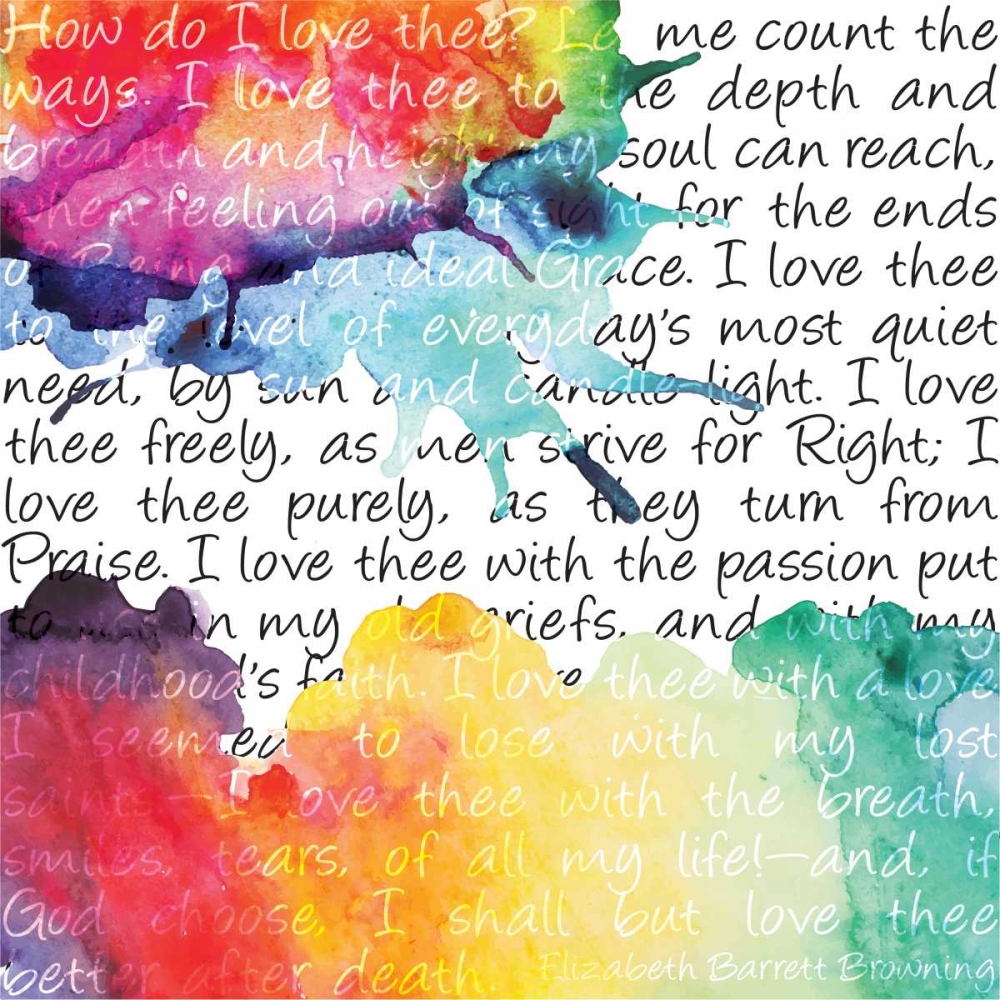 How do I love thee? Let me count the
ways. I love thee to the depth and
breadth and height my soul can reach,
when feeling out of sight for the ends
of Being and ideal Grace. I love thee
to the level of everyday's most quiet
need, by sun and candle-light. I love
thee freely, as men strive for Right; I
love thee purely, as they turn from
Praise. I love thee with the passion put
to in my old griefs, and with my
childhood's faith. I love thee with a love
I seemed to lose with my lost
saints—I love thee with the breath,
smiles, tears, of all my life!—and, if
God choose, I shall but love thee
better after death. Elizabeth Barrett Browning